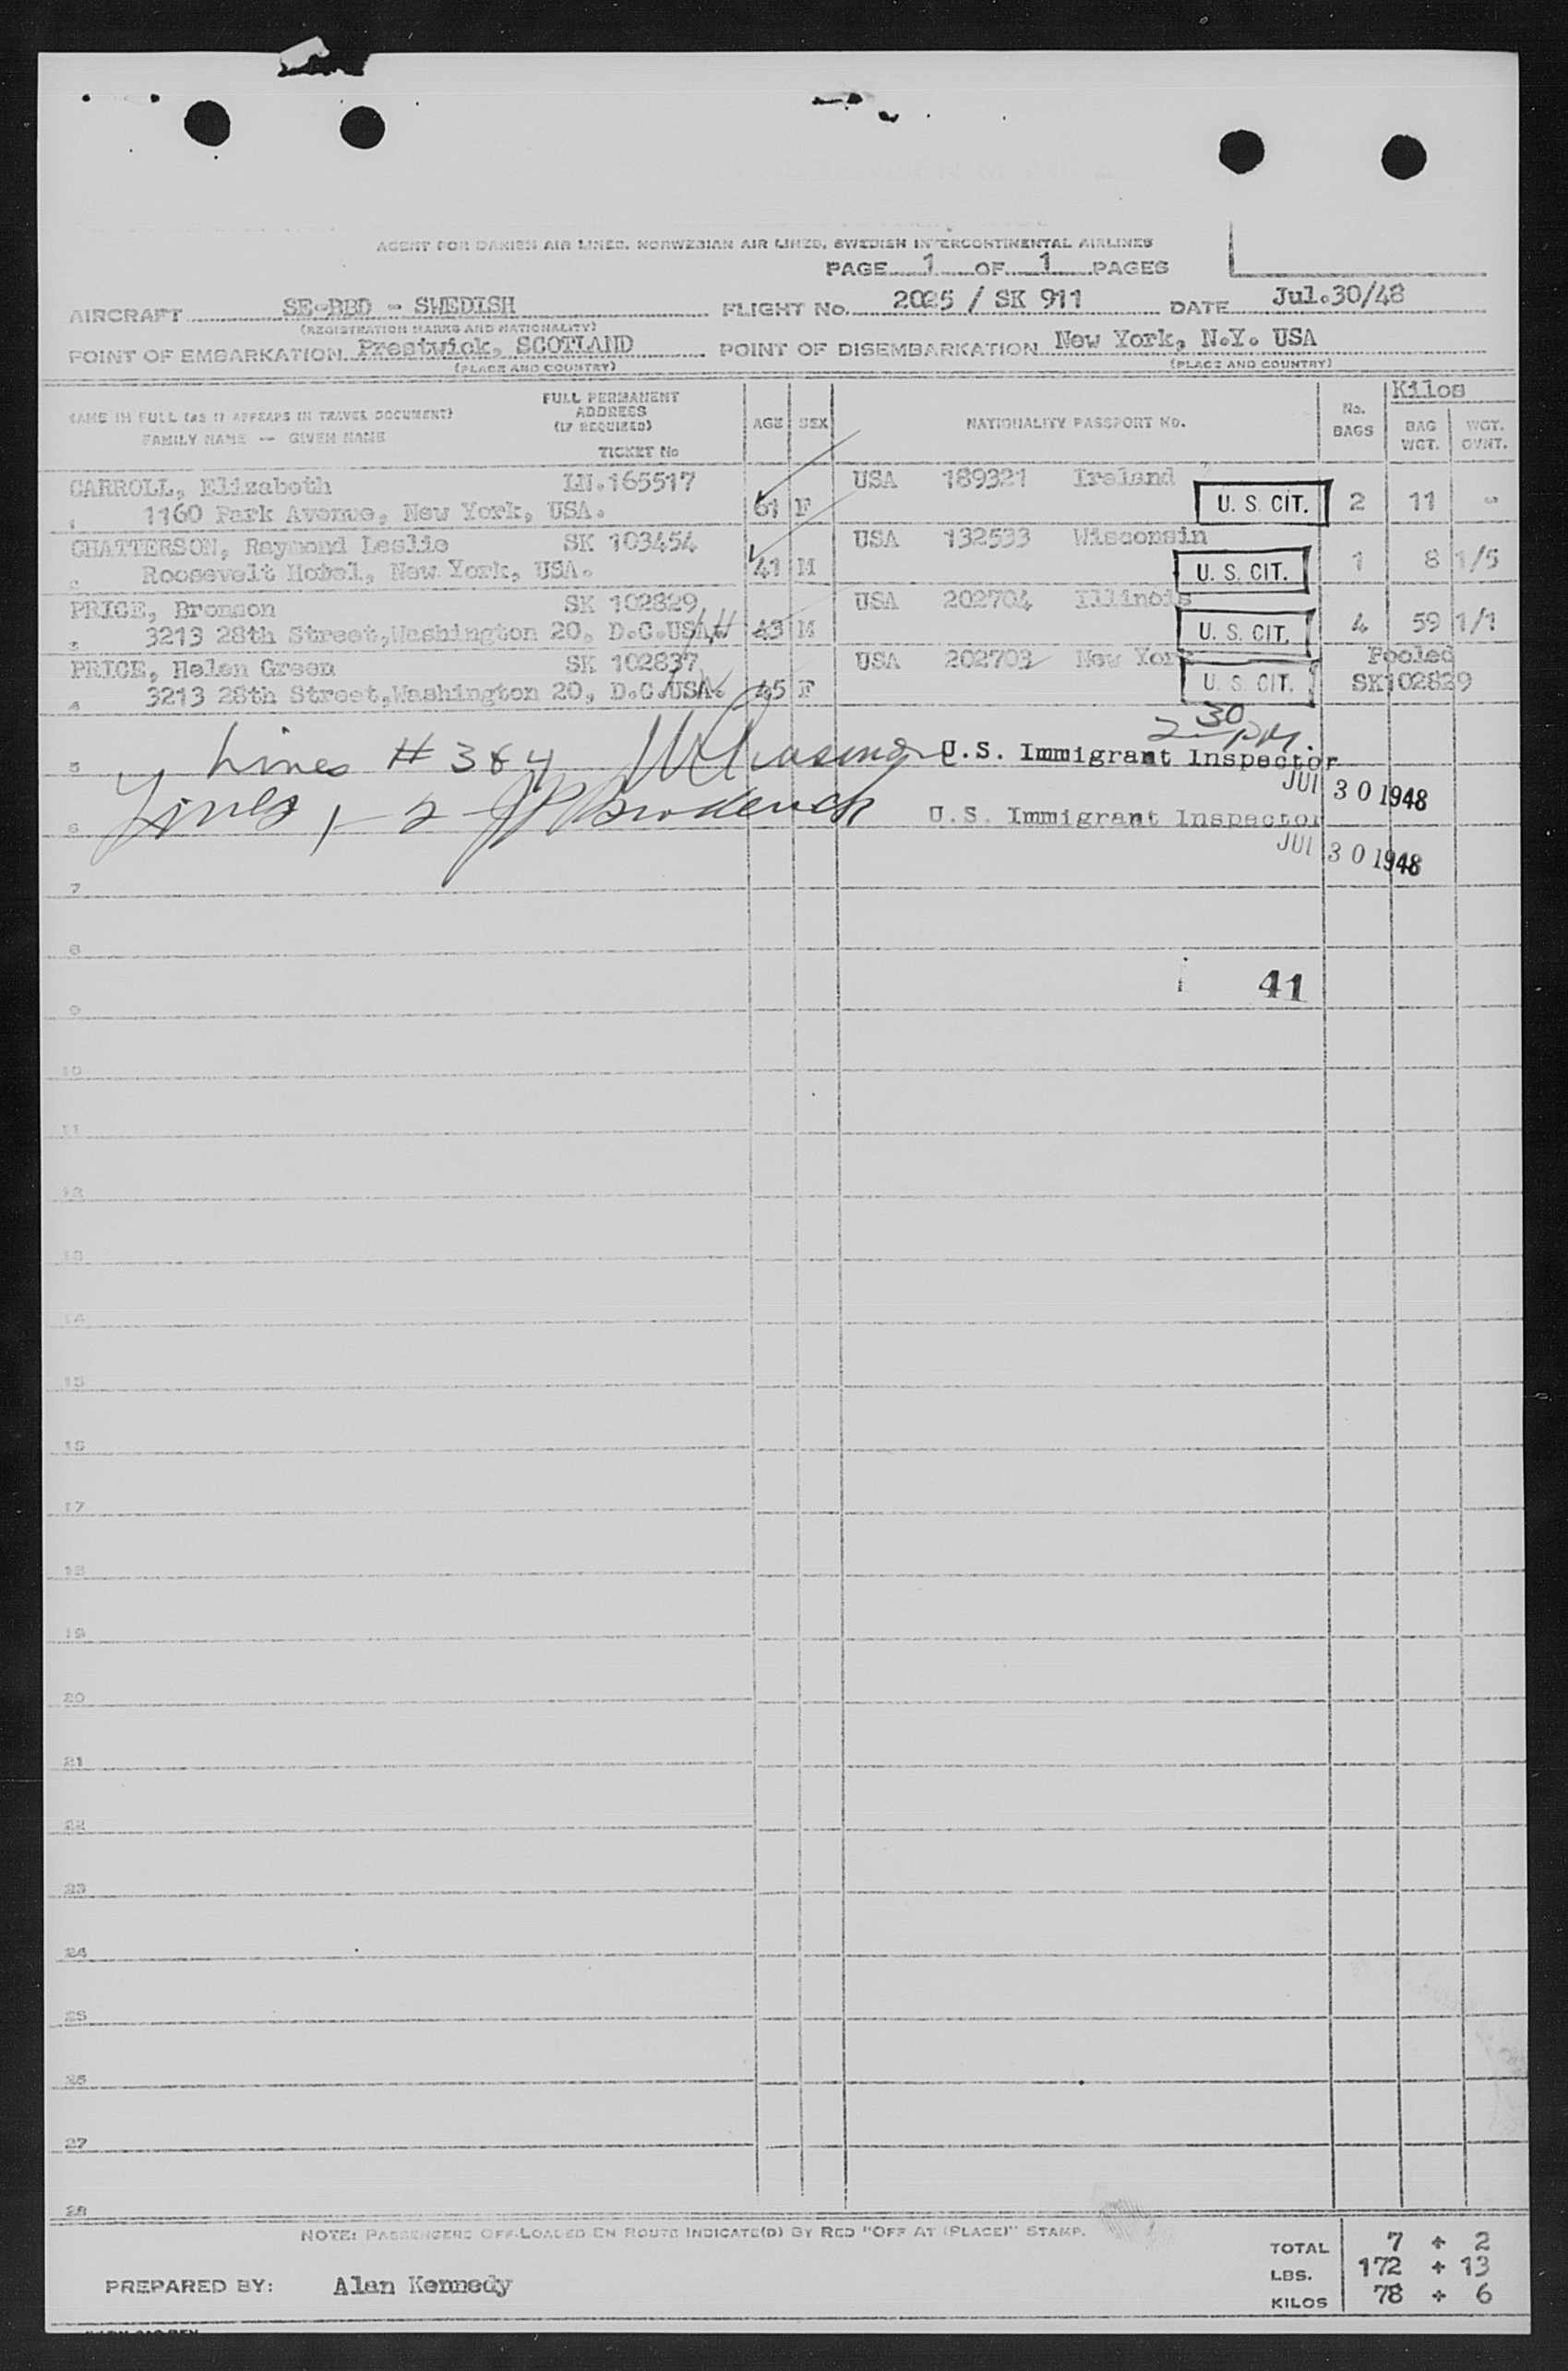 AGENT FOR DANISH AIR LINES, NORWEGIAN AIR LINES, SWEDISH INTERCONTINENTAL AIRLINES
PAGE 1 OF 1 PAGES
AIRCRAFT SE-BBD - SWEDISH FLIGHT No. 2025 / SK 911 DATE Jul.30/48
(REGISTRATION MARKS AND NATIONALITY)
POINT OF EMBARKATION Prestwick, SCOTLAND POINT OF DISEMBARKATION New York, N.Y. USA
(PLACE AND COUNTRY) (PLACE AND COUNTRY)
NAME IN FULL (AS IT APPEARS IN TRAVEL DOCUMENT)
FAMILY NAME -- GIVEN NAME
FULL PERMANENT
ADDRESS
(IF REQUIRED)
TICKET No
AGE SEX NATIONALITY PASSPORT No. No. BAGS Kilos BAG WGT. WGT. OVNT.
CARROLL, Elizabeth LN.165517 USA 189321 Ireland
1 1160 Park Avenue, New York, USA. 61 F U. S. CIT. 2 11 -
CHATTERSON, Raymond Leslie SK 103454 USA 132533 Wisconsin
2 Roosevelt Hotel, New York, USA. 41 M U. S. CIT. 1 8 1/5
PRICE, Bronson SK 102829 USA 202704 Illinois
3 3213 28th Street,Washington 20, D.C.USA. 43 M U. S. CIT. 4 59 1/1
PRICE, Helen Green SK 102837 USA 202703 New York Pooled
4 3213 28th Street,Washington 20, D.C.USA. 45 F U. S. CIT. SK102829
2 30 PM.
5 Lines # 3 & 4 U.S. Immigrant Inspector
JUL 30 1948
6 Lines 1-2 U.S. Immigrant Inspector
JUL 30 1948
7
8
41
9
10
11
12
13
14
15
16
17
18
19
20
21
22
23
24
25
26
27
28
NOTE: PASSENGERS OFF-LOADED EN ROUTE INDICATE(D) BY RED "OFF AT (PLACE)" STAMP.
TOTAL 7 + 2
LBS. 172 + 13
PREPARED BY: Alan Kennedy
KILOS 78 + 6